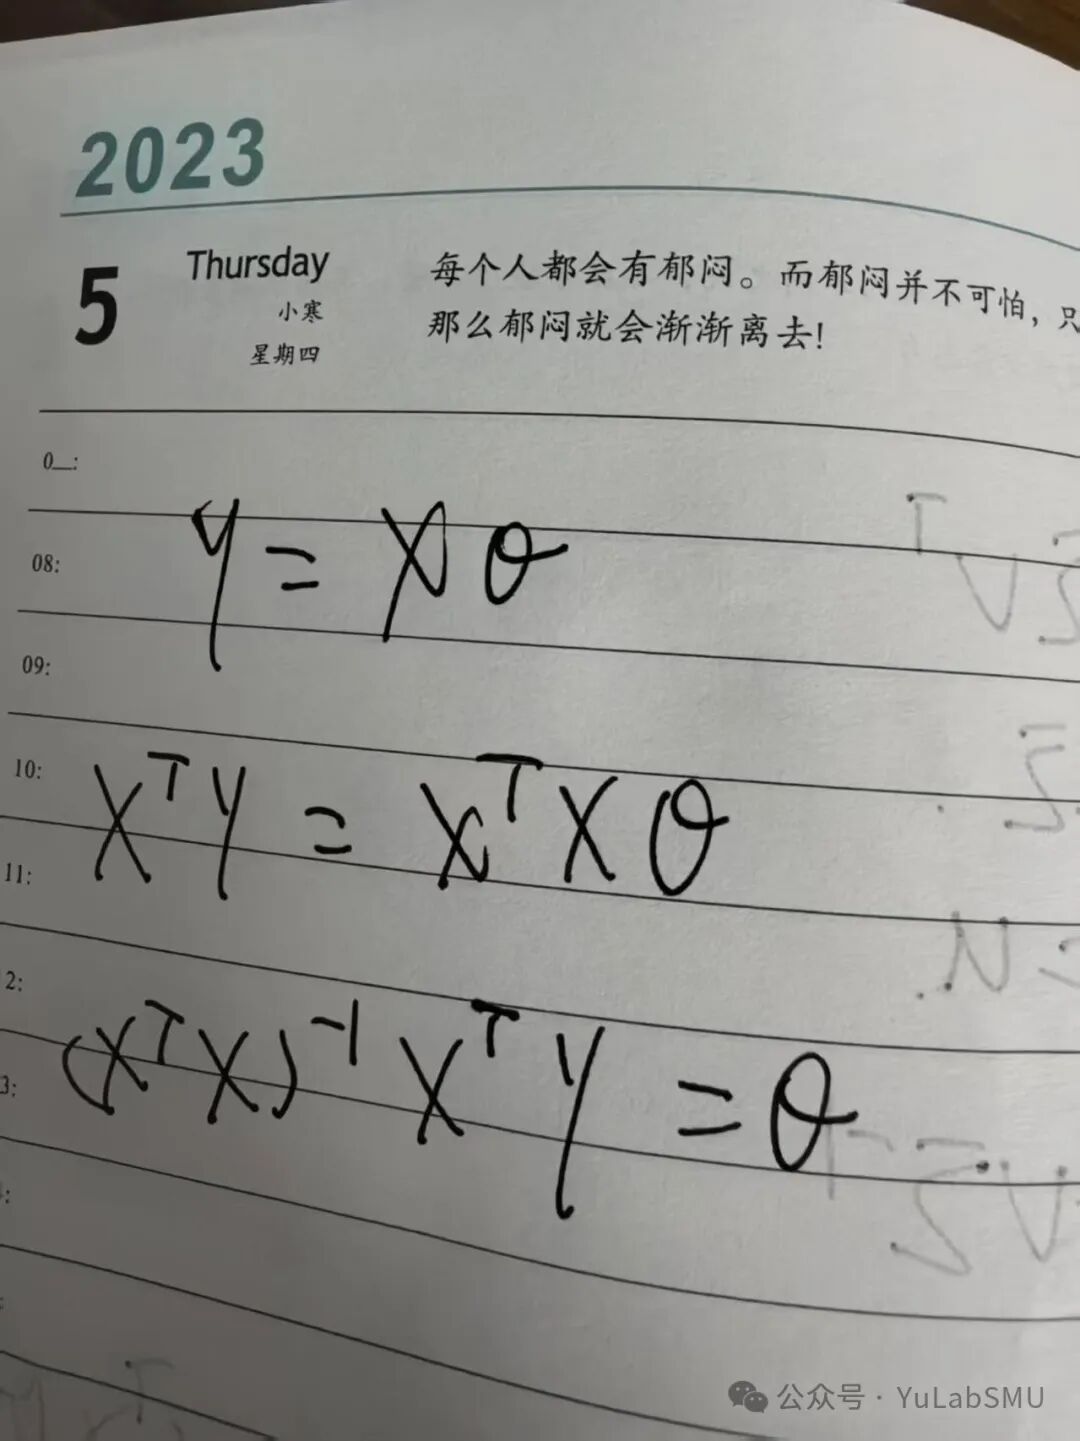 2023
5 Thursday
小寒
星期四
每个人都会有郁闷。而郁闷并不可怕，只
那么郁闷就会渐渐离去！
0_:
08:
y = Xθ
09:
10:
Xᵀy = XᵀXθ
11:
2:
(XᵀX)⁻¹Xᵀy = θ
3:
公众号 · YuLabSMU